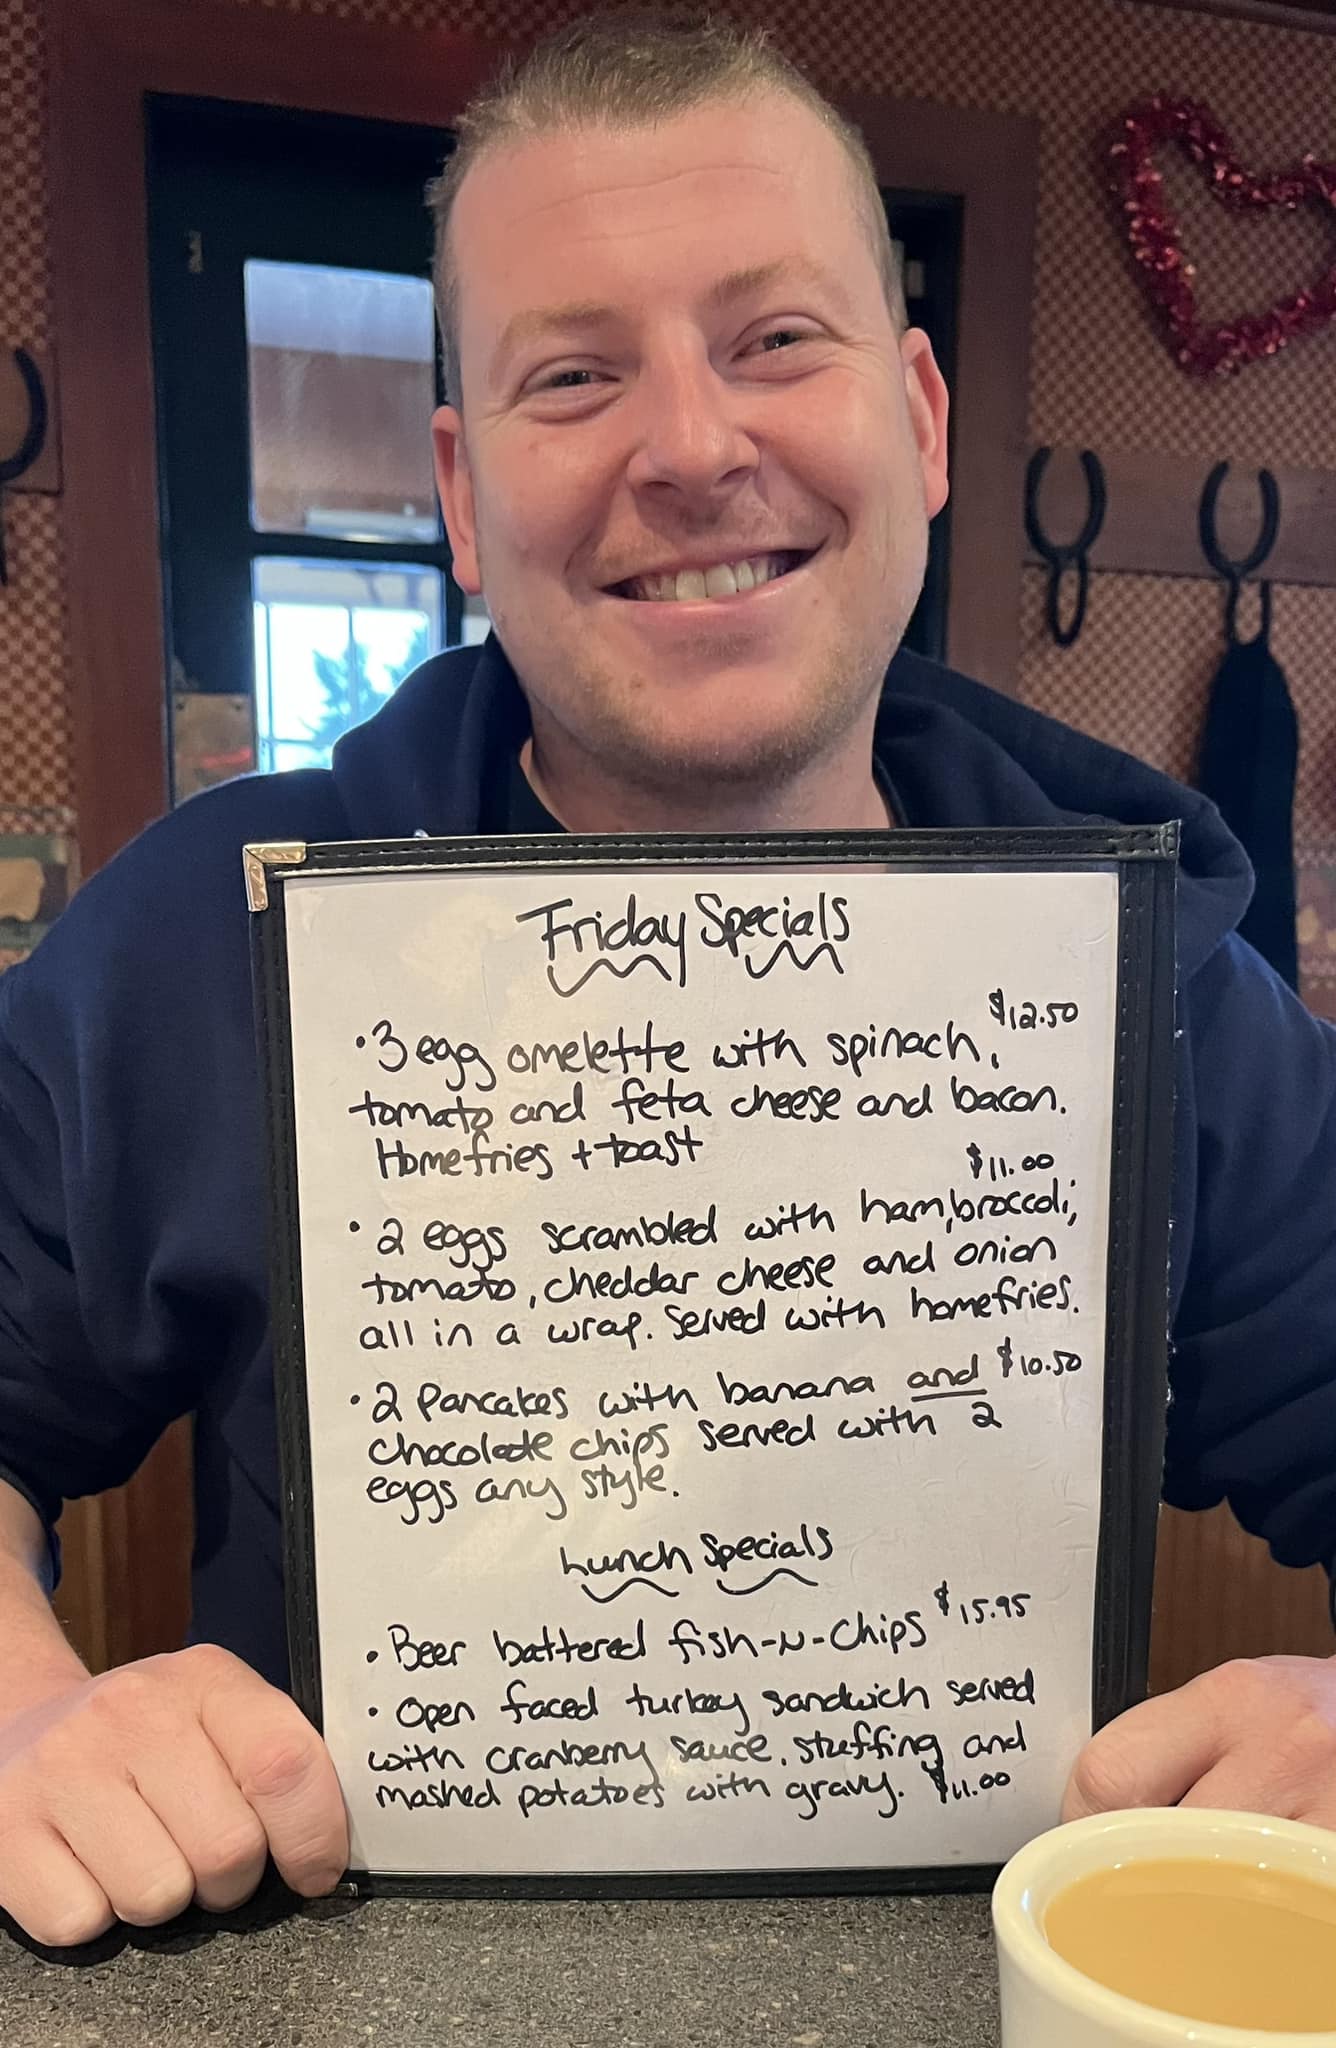 Friday Specials
• 3 egg omelette with spinach, $12.50
tomato and feta cheese and bacon.
Homefries + toast
$11.00
• 2 eggs scrambled with ham, broccoli,
tomato, cheddar cheese and onion
all in a wrap. Served with homefries.
• 2 Pancakes with banana and $10.50
chocolate chips served with 2
eggs any style.
Lunch Specials
• Beer battered fish-N-Chips $15.95
• Open faced turkey sandwich served
with cranberry sauce, stuffing and
mashed potatoes with gravy. $11.00